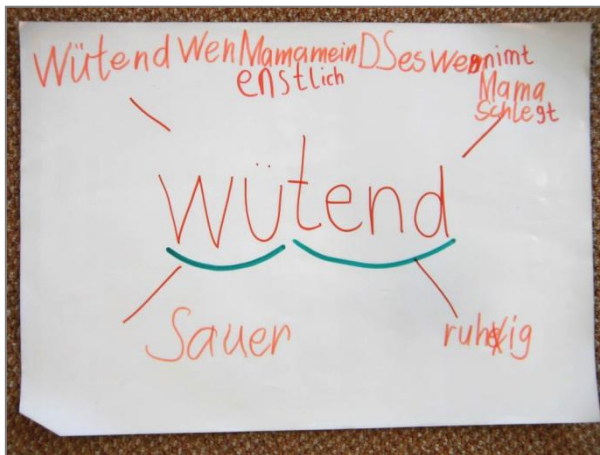 Wütend Wen Mama mein DS es Wen nimt
enstlich
Mama
schlegt
wütend
Sauer
ruhig